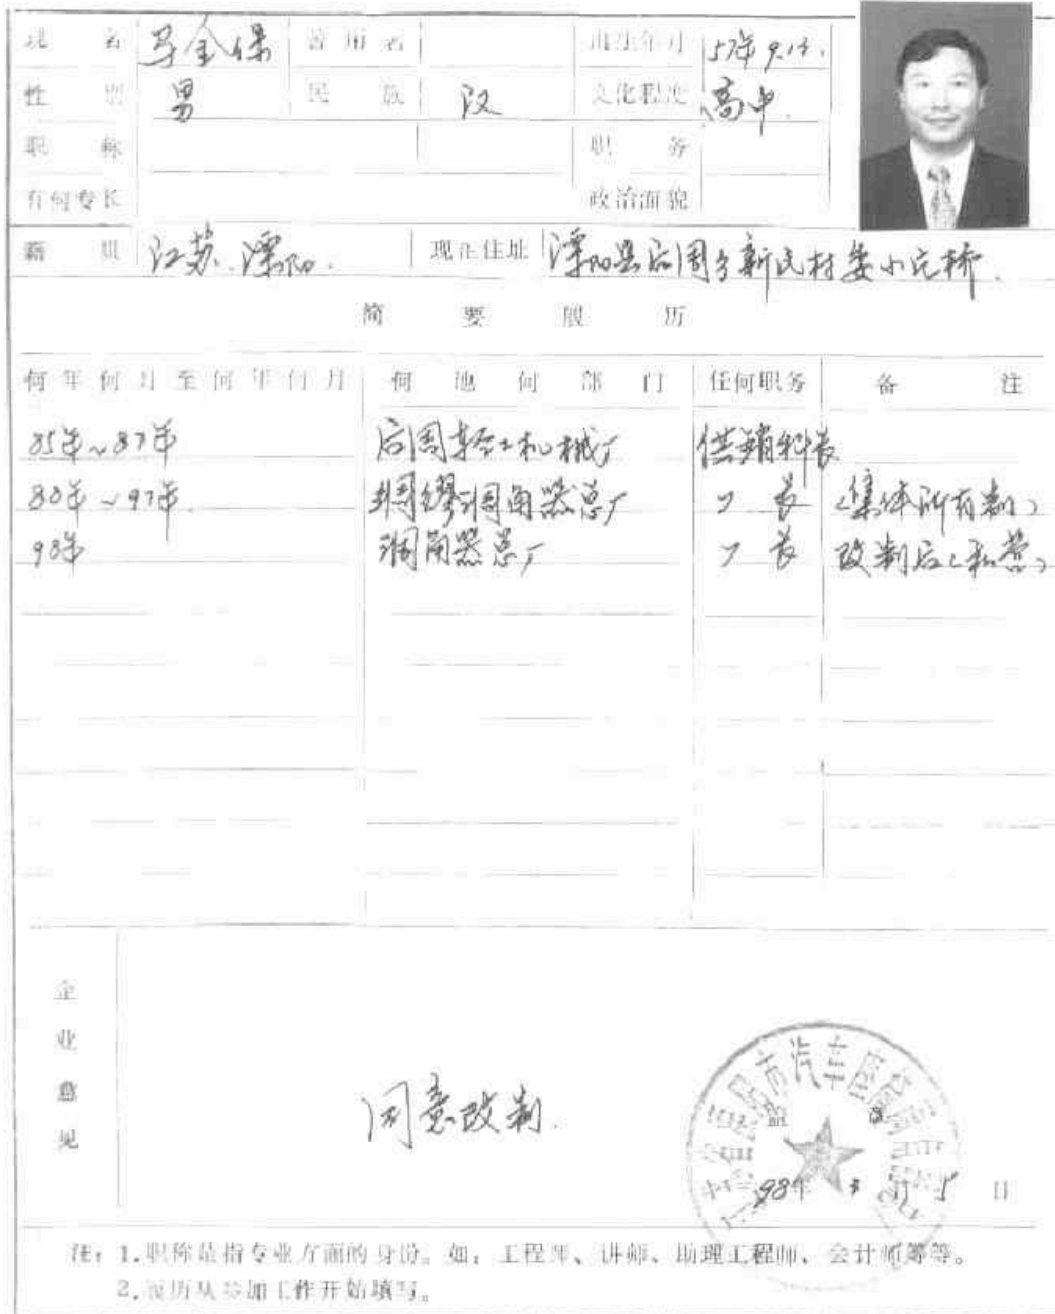 姓 名 马金保 曾用名 出生年月 57年9.13.
性 别 男 民 族 汉 文化程度 高中.
职 称 职 务
有何专长 政治面貌
籍 贯 江苏.溧阳. 现在住址 溧阳县后周乡新民村委小圩桥.
简 要 履 历
何年何月至何年何月 何地何部门 任何职务 备 注
85年~87年 后周轻工机械厂 供销科长
80年~97年 调角器总厂 厂长 (集体所有制)
98年 调角器总厂 厂长 改制后(私营)
企业意见
同意改制.
市汽车座
98年 3月 5日
注:1.职称是指专业方面的身份。如:工程师、讲师、助理工程师、会计师等等。
2.履历从参加工作开始填写。